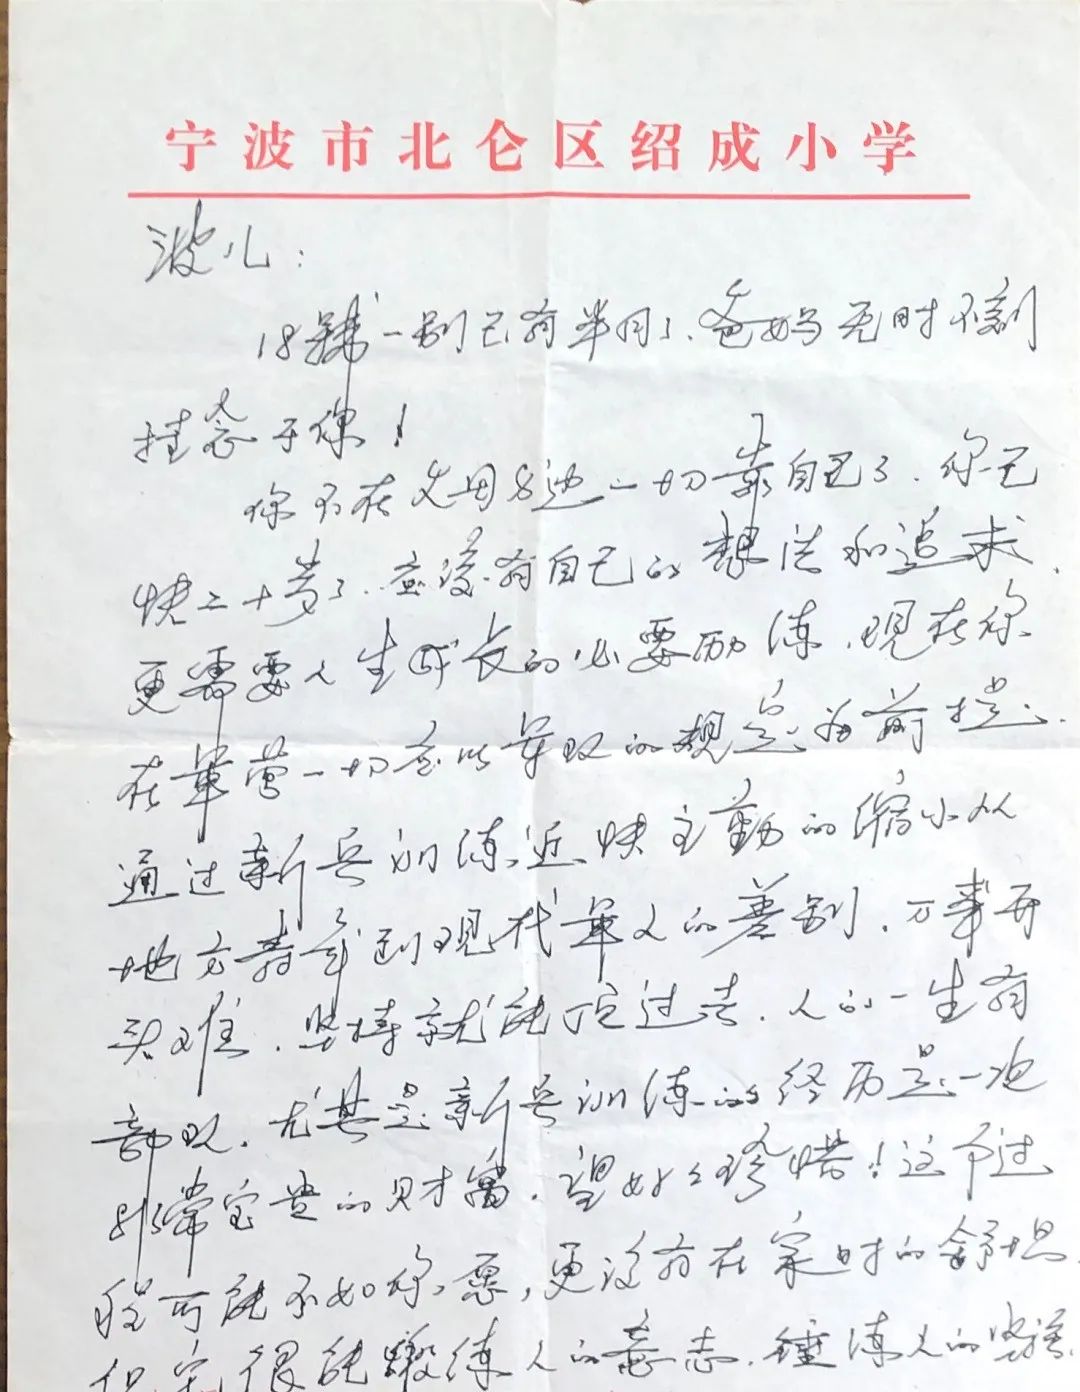 宁波市北仑区绍成小学
波儿：
18號一别已有半月了、爸妈无时不刻
挂念于你！
你不在父母身边一切靠自己了、你已
快二十岁了、应该有自己的想法和追求、
更需要人生成长的必要历练、现在你
在軍营一切应以军队的规定为前提、
通过新兵训练近快主動的缩小从
地方青年到现代軍人的差别、万事开
头难、坚持就能顶过去、人的一生有
部队、尤其是新兵训练的经历是一次
非常宝贵的财富、望好好珍惜！这个过
程可能不如你愿，更没有在家时的舒坦、
但它很能鍛练人的意志、锤练人的坚强、